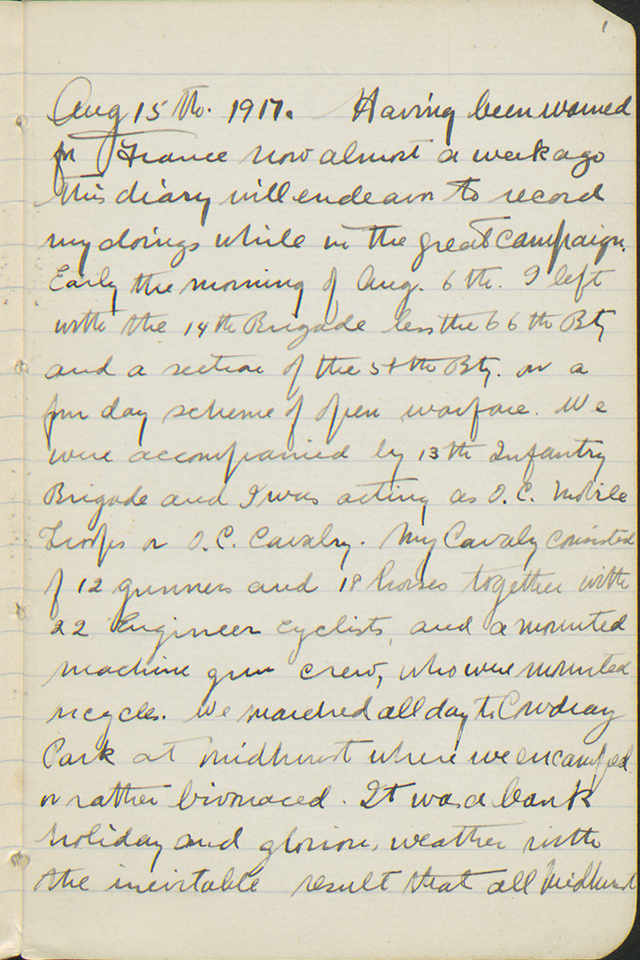 1
Aug 15th. 1917. Having been warned
for France now almost a week ago
this diary will endeavor to record
my doings while in the great campaign.
Early the morning of Aug. 6th. I left
with the 14th Brigade less the 66th Bty
and a section of the 58th Bty. on a
four day scheme of open warfare. We
were accompanied by 13th Infantry
Brigade and I was acting as O.C. Mobile
Troops or O.C. Cavalry. My Cavalry consisted
of 12 gunners and 18 horses together with
22 Engineer cyclists, and a mounted
machine gun crew, who were mounted
. We marched all day to Cowdray
Park at Midhurst where we encamped
or rather bivouaced. It was a bank
holiday and glorious weather with
the inevitable result that all Midhurst